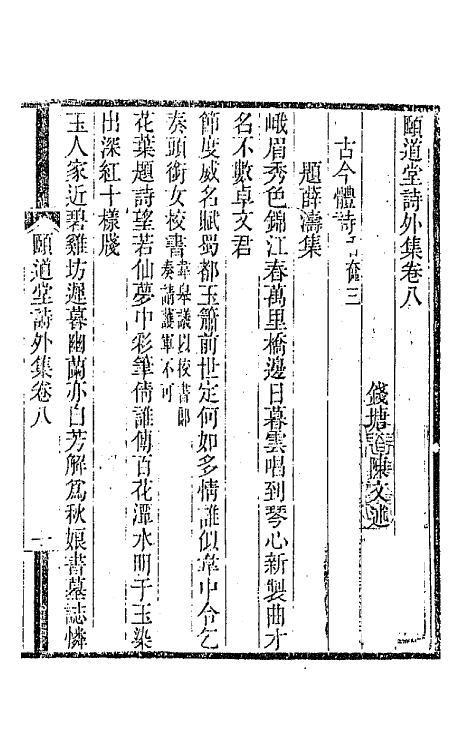 頤道堂詩外集卷八
錢塘陳文述
古今體詩
題薛濤集
峨眉秀色錦江春萬里橋邊日暮雲唱到琴心新製曲才
名不數卓文君
節度威名賦蜀都玉簫前世定何如多情誰似韋中令乞
奏頭銜女校書韋皋議以校書郎
奏請護軍不可
花葉題詩望若仙夢中彩筆倩誰傳百花潭水明于玉染
出深紅十樣牋
玉人家近碧雞坊遲暮幽蘭亦自芳解爲秋娘書墓誌憐
頤道堂詩外集卷八 一